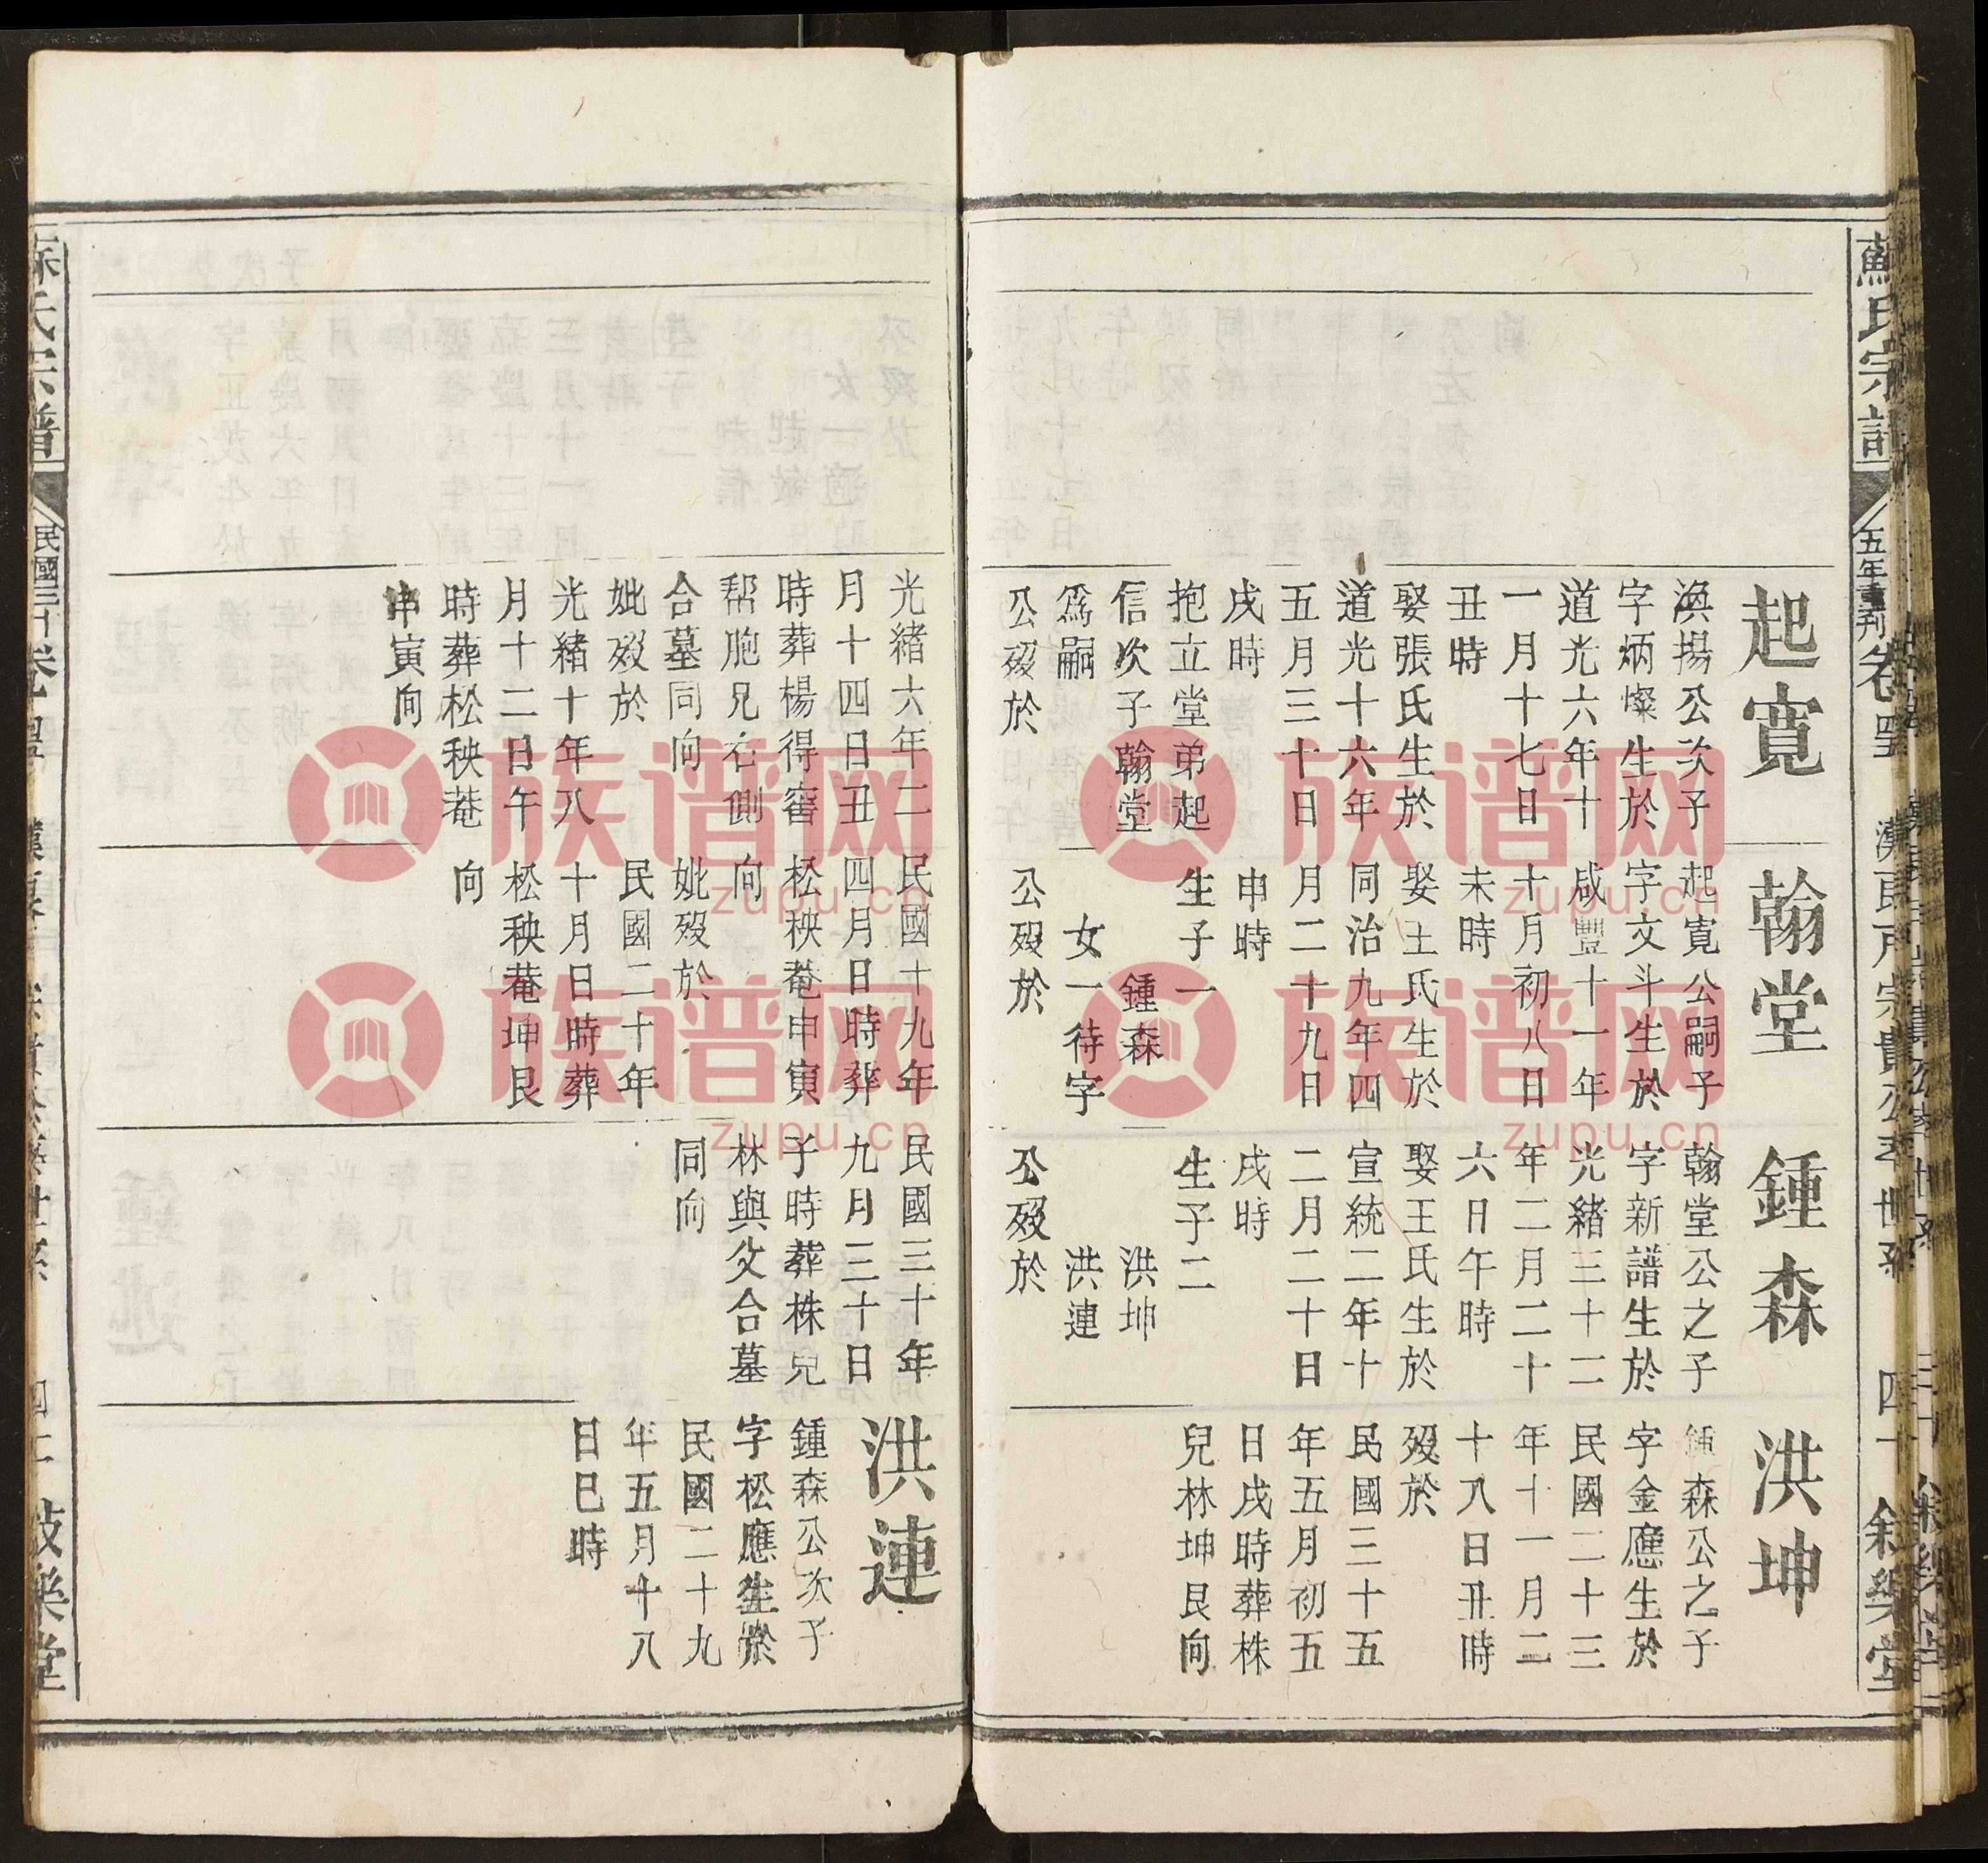 蘇氏宗譜
五年重刊
起寬
渙揚公次子
字炳燦生於
道光六年十
一月十七日
丑時
娶張氏生於
道光十六年
五月三十日
戌時
抱立堂弟起
信次子翰堂
為嗣
公歿於
翰堂
起寬公嗣子
字文斗生於
咸豐十一年
十月初八日
未時
娶王氏生於
同治九年四
月二十九日
申時
生子一
鍾森
女一待字
公歿於
鍾森
翰堂公之子
字新譜生於
光緒三十二
年二月二十
六日午時
娶王氏生於
宣統二年十
二月二十日
戌時
生子二
洪坤
洪連
公歿於
洪坤
鍾森公之子
字金應生於
民國二十三
年十一月二
十八日丑時
歿於
民國三十五
年五月初五
日戌時葬株
兒林坤艮向
四十一 敍樂堂
光緒六年二
月十四日丑
時葬楊得窰
幇胞兄右側
合墓同向
妣歿於
光緒十年八
月十二日午
時葬松秧菴
申寅向
民國十九年
四月日時葬
松秧菴申寅
向
妣歿於
民國二十年
十月日時葬
松秧菴坤艮
向
民國三十年
九月三十日
子時葬株兒
林與父合墓
同向
洪連
鍾森公次子
字松應生於
民國二十九
年五月十八
日巳時
族谱网
zupu.cn
族谱网
zupu.cn
族谱网
zupu.cn
族谱网
zupu.cn